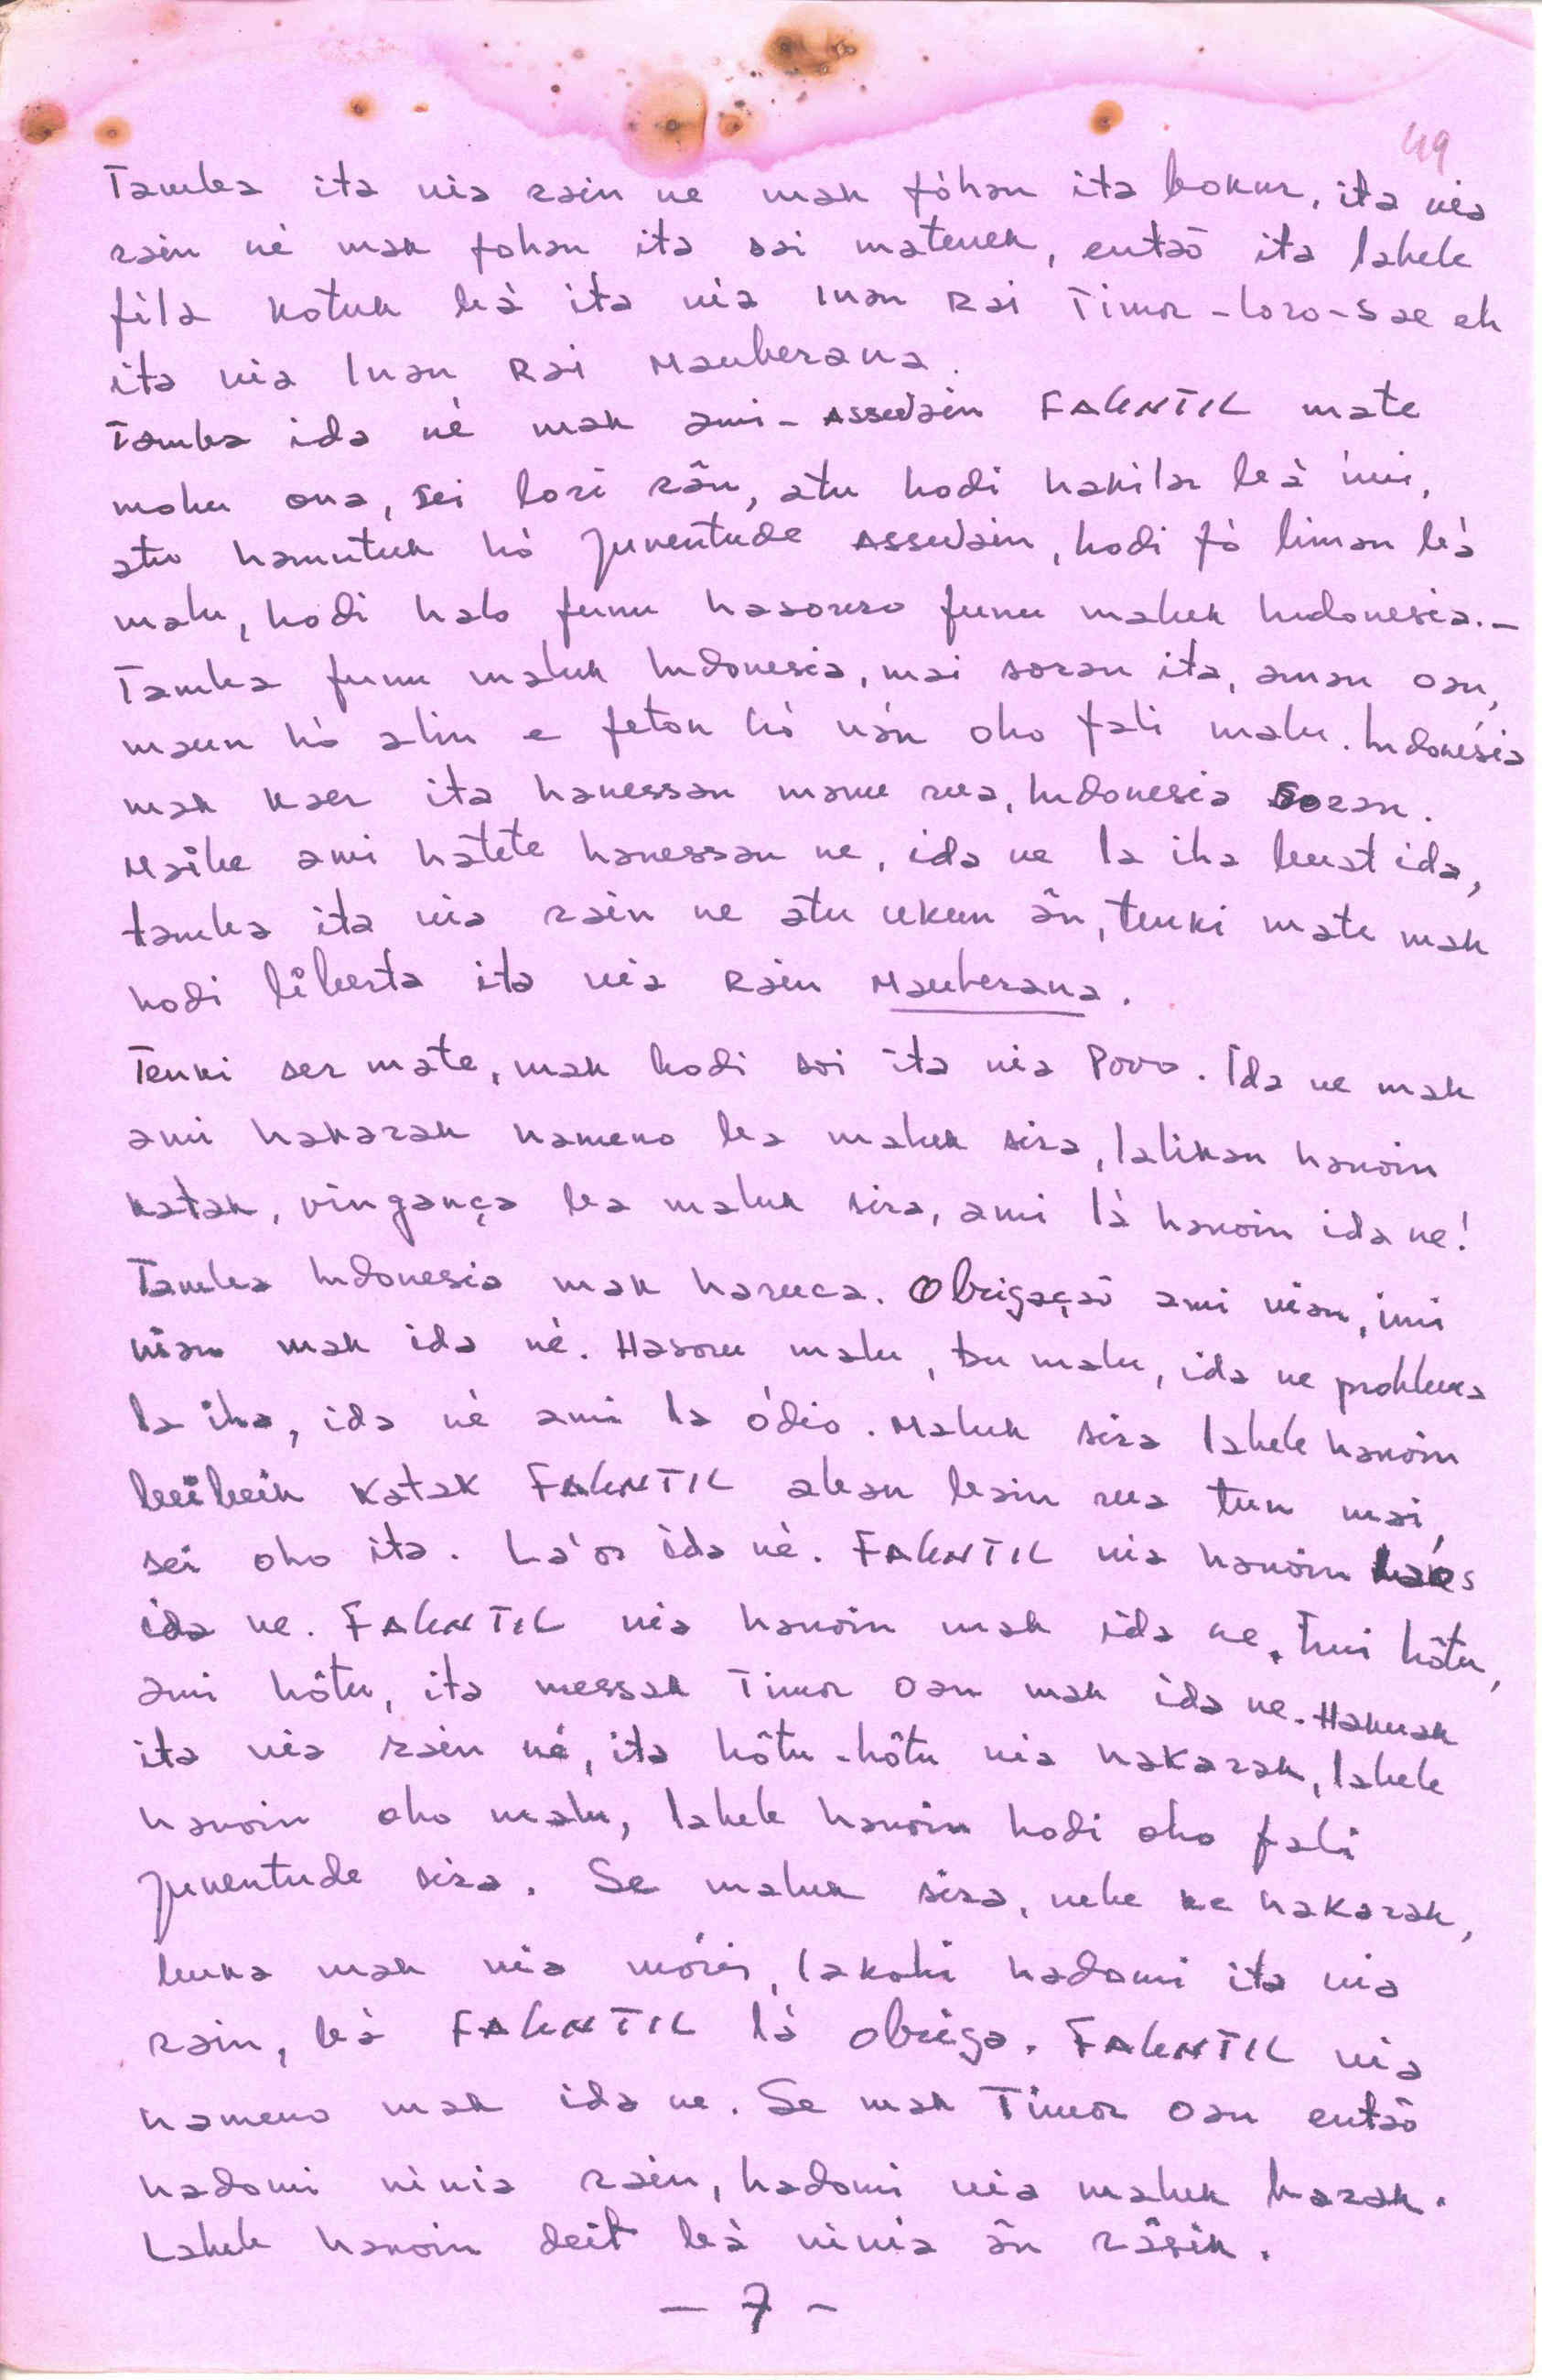 49
Tamba ita nia rain ne mak fóhan ita bokur, ita nia
rain né mak fohan ita sai matenek, entaõ ita labele
fila kotuk bá ita nia Inan Rai Timor-Loro-Sae eh
ita nia Inan Rai Mauberana.
Tamba ida né mak ami - Assuwain FALINTIL mate
mohu ona, sei lori rân, atu hodi hakilar bá imi,
atu hamutuk hó Juventude Assuwain, hodi fó liman bá
malu, hodi halo funu hasouro funu maluk Indonesia.-
Tamba funu maluk Indonesia, mai soran ita, aman oan,
maun hó alin e feton hó nán oho fali malu. Indonésia
mak kaer ita hanessan manu rua, Indonesia soran.
Maibe ami hatete hanessan ne, ida ne la iha buat ida,
tamba ita nia rain ne atu ukun ân, tenki mate mak
hodi liberta ita nia Rain Mauberana.
Tenki ser mate, mak hodi soi ita nia Povo. Ida ne mak
ami hakarak hameno ba maluk sira, lalikan hanoin
katak, vingança ba maluk sira, ami lá hanoin ida ne!
Tamba Indonesia mak haruca. Obrigaçaõ ami nian, imi
nian mak ida né. Hasoru malu, tu malu, ida ne problema
la iha, ida né ami la ódio. Maluk sira labele hanoin
beibeik katak FALINTIL aban bain rua tun mai,
sei oho ita. La'os ida né. FALINTIL nia hanoin laós
ida ne. FALINTIL nia hanoin mak ida ne. Imi hôtu,
ami hôtu, ita messak Timor oan mak ida ne. Hakuak
ita nia rain né, ita hôtu-hôtu nia hakarak, labele
hanoin oho malu, labele hanoin hodi oho fali
juventude sira. Se maluk sira, nebe ke hakarak,
buka mak nia móris, lakohi hadomi ita nia
rain, bá FALINTIL lá obriga. FALINTIL nia
hameno mak ida ne. Se mak Timor oan entaõ
hadomi ninia rain, hadomi nia maluk barak.
Labele hanoin deit bá ninia ân râsik.
- 7 -